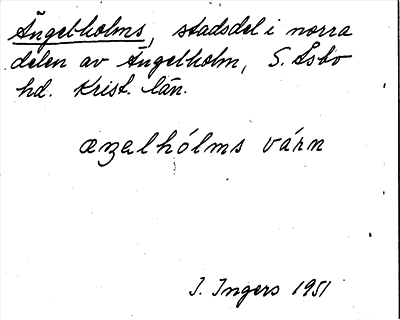 Ängelholms, stadsdel i norra
delen av Ängelholm, S. Åsbo
hd. Krist. län.
æŋəlhólms várn
I. Ingers 1951